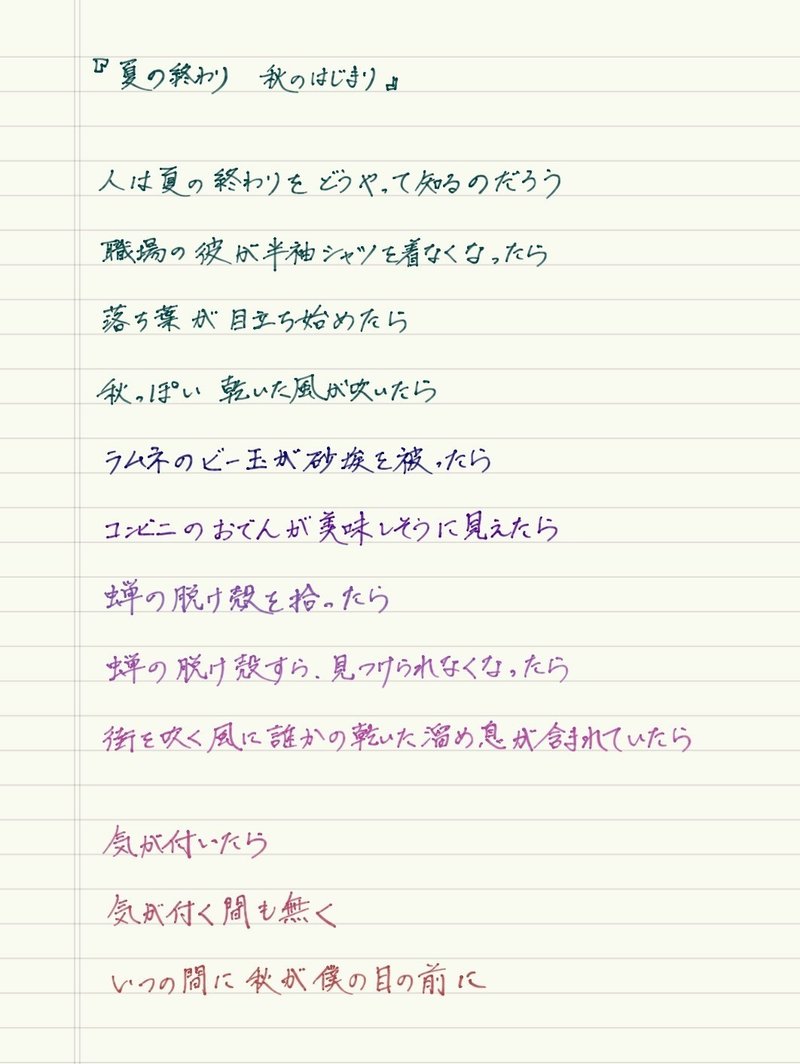 『夏の終わり 秋のはじまり』
人は夏の終わりをどうやって知るのだろう
職場の彼が半袖シャツを着なくなったら
落ち葉が目立ち始めたら
秋っぽい 乾いた風が吹いたら
ラムネのビー玉が砂埃を被ったら
コンビニのおでんが美味しそうに見えたら
蝉の脱け殻を拾ったら
蝉の脱け殻すら、見つけられなくなったら
街を吹く風に誰かの乾いた溜め息が含まれていたら
気が付いたら
気が付く間も無く
いつの間に秋が僕の目の前に